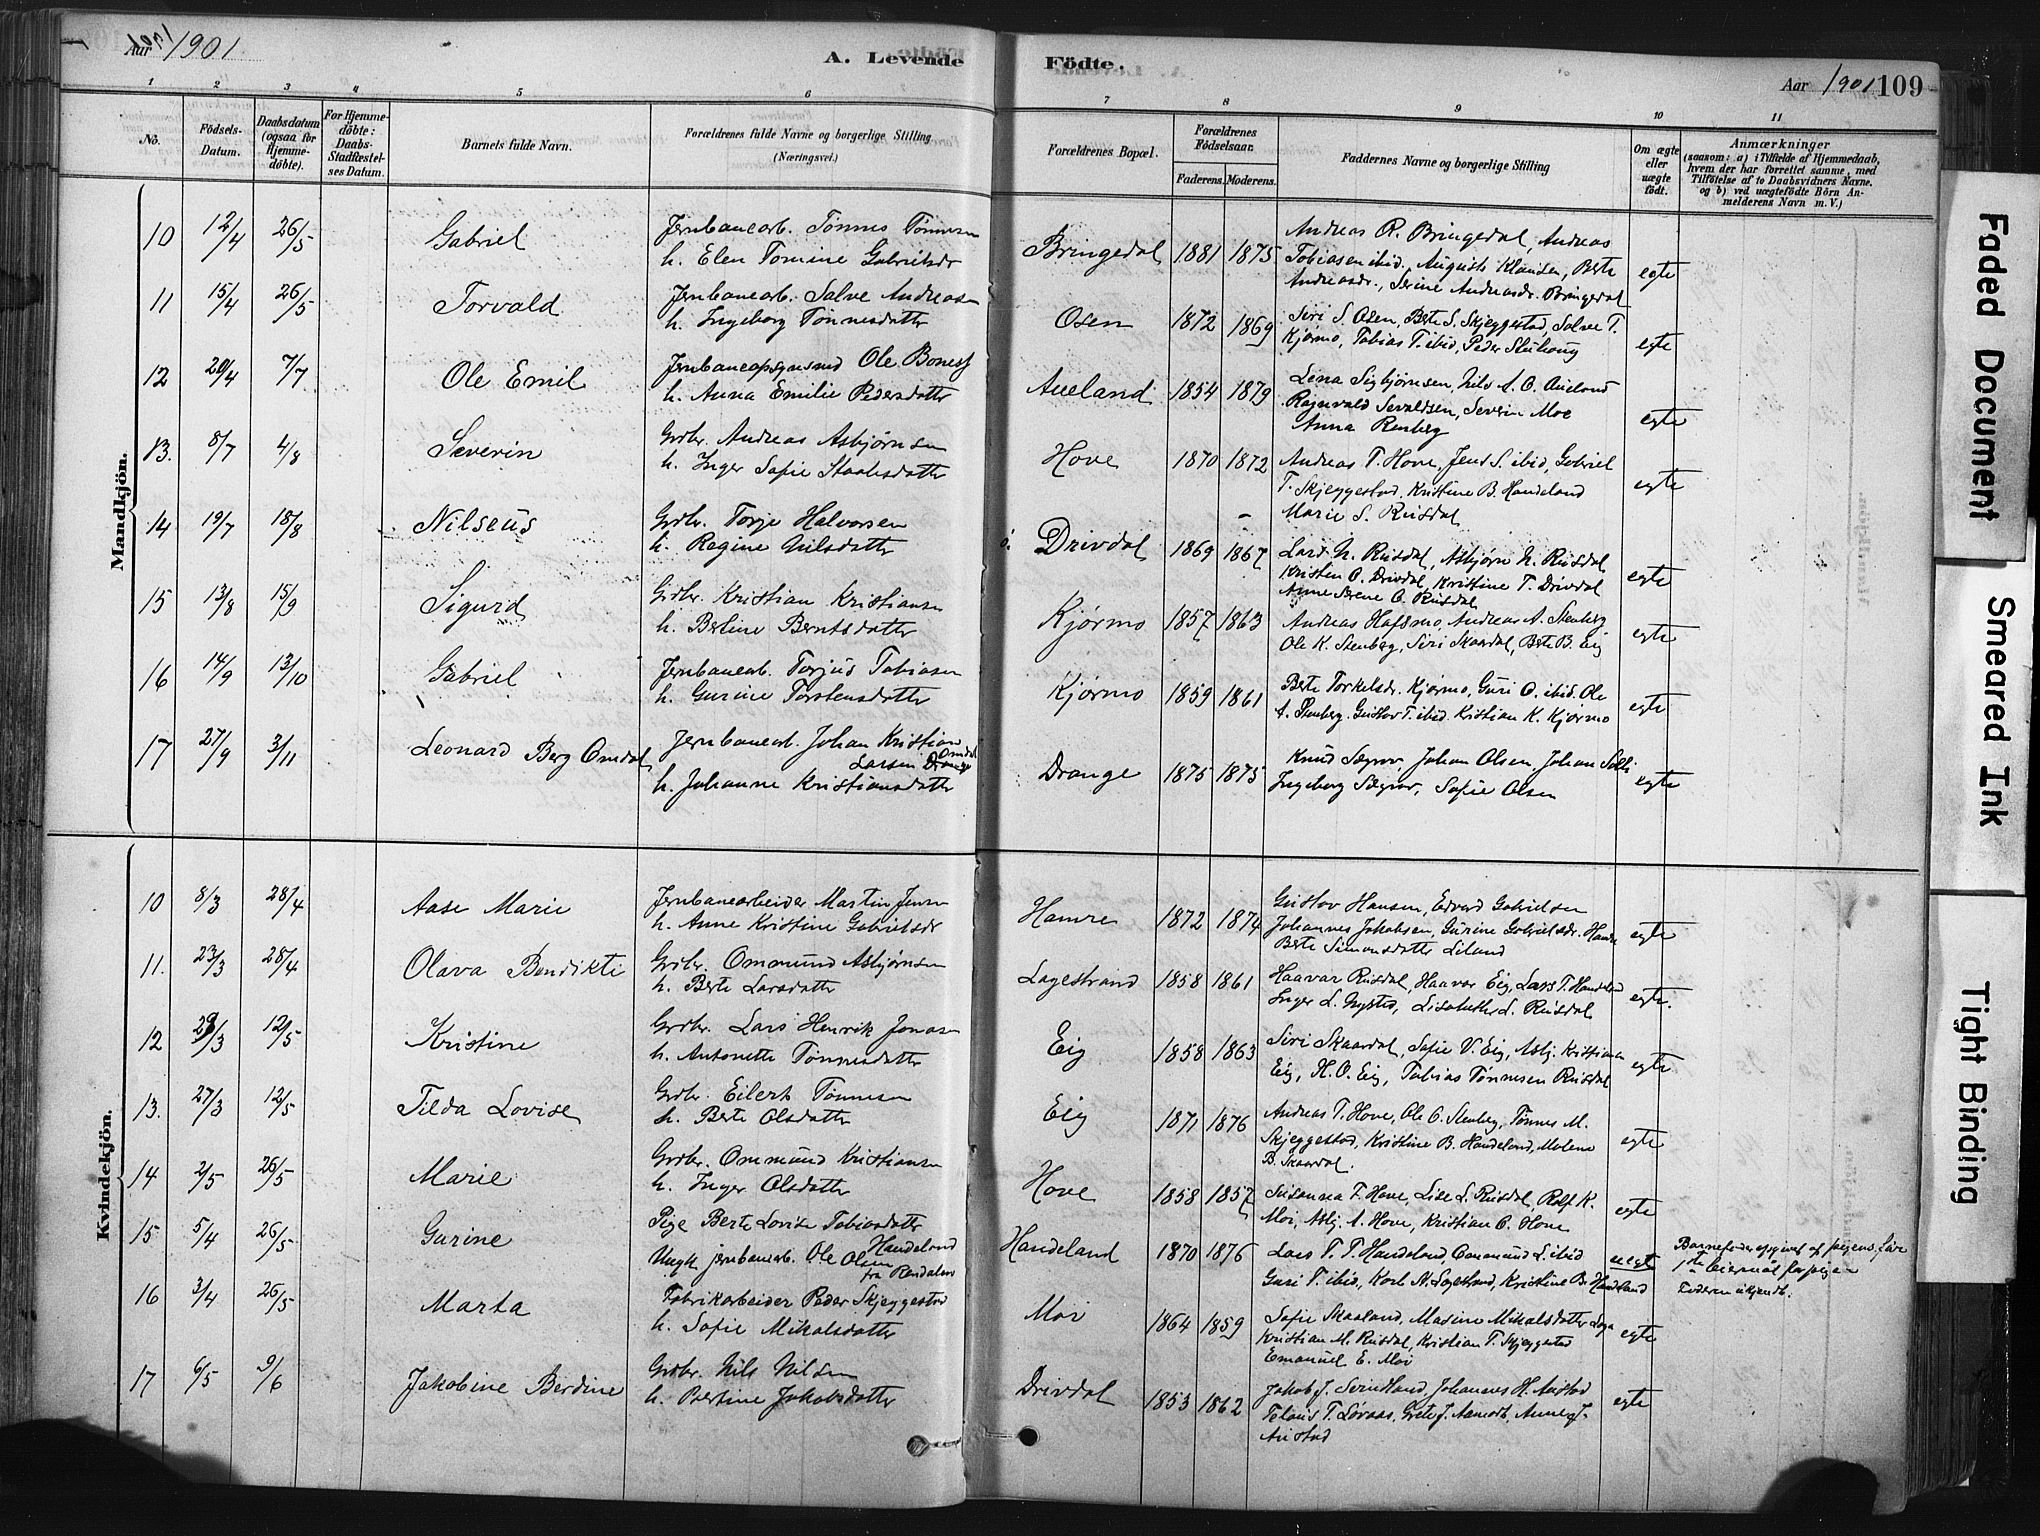 Aar 1901
A. Levende Födte.
Aar 1901 109
1 2 3 4 5 6 7 8 9 10 11
No.
Födsels-Datum.
Daabsdatum (ogsaa for Hjemme-döbte).
For Hjemme-döbte: Daabs-Stadfæstel-ses Datum.
Barnets fulde Navn.
Forældrenes fulde Navne og borgerlige Stilling (Næringsvei.)
Forældrenes Bopæl.
Forældrenes Födselsaar.
Faderens. Moderens.
Faddernes Navne og borgerlige Stilling
Om ægte eller uægte födt.
Anmærkninger
(saasom: a) i Tilfælde af Hjemmedaab,
hvem der har forrettet samme, med
Tilföielse af to Daabsvidners Navne.
og b) ved uægtefödte Börn An-
melderens Navn m. V.)
Mandkjön.
10 12/4 26/5 Gabriel
Jernbanearb. Tønnes Tønnesen
h. Elen Tomine Gabrielsdr
Bringedal 1881 1875
Andreas R. Bringedal, Andreas
Tobiasen ibid, Augusts Klausen, Berte
Andreasdr., Serine Andreasdr. Bringedal
egte
11 15/4 26/5 Torvald
Jernbanearb. Salve Andreasen
h. Ingeborg Tønnesdatter
Osen 1872 1869
Siri S. Osen, Berte S. Skjeggestad, Salve T.
Kjørmo, Tobias T. ibid, Peder
egte
12 20/4 7/7 Ole Emil
Ole
h. Anna Emilie Pedersdatter
Aueland 1854 1879
Lena Sigbjørnsen, Nils A. O. Aueland
Ragnvald Sevaldsen, Severin Moe
Anna Renberg
egte
13. 8/7 4/8 Severin
Grdbr. Andreas Asbjørnsen
h. Inger Sofie Staalesdatter
Hove 1870 1872
Andreas T. Hove, Jens S. ibid, Gabriel
T. Skjeggestad, Kristine B. Handeland
Marie S. Rusdal
egte
14 19/7 18/8 Nilseus
Grdbr. Torje Halvorsen
h. Regine Nilsdatter
Drivdal 1869 1867
Lars N. Rusdal, Asbjørn N. Rusdal
Kristen O. Drivdal, Kristine T. Drivdal
Anne Serene O. Rusdal
egte
15 13/8 15/9 Sigurd
Grdbr. Kristian Kristiansen
h. Betine Berntsdatter
Kjørmo 1857 1863
Andreas Hafsmo, Andreas A. Stenberg
Ole K. Stenberg, Siri Skaardal, Berte B. Eig
egte
16 14/9 13/10 Gabriel
Jernbanearb. Torjus Tobiasen
h. Gurine Torstensdatter
Kjørmo 1859 1861
Berte Torkelsdr. Kjørmo, Guri O. ibid. Ole
A. Stenberg. Gustov T. ibid. Kristian K. Kjørmo
egte
17 27/9 3/11 Leonard Berg Omdal
Jernbanearb. Johan Kristian
Larsen Omdal
h. Johanne Kristiansdatter
Drange 1875 1875
Knud Segrov, Johan Olsen, Johan
Ingeborg Segrov, Sofie Olsen
egte
Kvindekjön.
10 8/3 28/4 Aase Marie
Jernbanearbeider Martin Jensen
h. Anne Kristine Gabrielsdr
Hamre 1872 1874
Gustov Hansen, Edvard Gabrielsen
Johannes Jakobsen, Gurine Gabrielsdr. Hamre
Berte Simonsdatter Eiland
egte
11. 23/3 28/4 Olava Bendikte
Grdbr. Ommund Asbjørnsen
h. Berte Larsdatter
Lagestrand 1858 1861
Haavar Rusdal, Haavar Eig, Lars T. Handeland
Inger L. Nysted, Lisabeth L. Rusdal
egte.
12 29/3 12/5 Kristine
Grdbr. Lars Henrik Jonasen
h. Antonette Tønnesdatter
Eig 1858 1863
Siri Skaardal, Sofie V. Eig, Asbj. Kristiansen
Eig, H. O. Eig, Tobias Tønnesen Rusdal
egte
13. 27/3 12/5 Tilda Lovise
Grdbr. Eilert Tønnesen
h. Berte Olsdatter
Eig 1871 1876
Andreas T. Hove, Ole O. Stenberg, Tønnes M.
Skjeggestad, Kristine B. Handeland, Malene
B. Skaardal.
egte
14 2/5 26/5 Marie
Grdbr. Ommund Kristiansen
h. Inger Olsdatter
Hove 1858 1857
Susanna T. Hove, Lise L. Rusdal, Rolf K.
Moi, Asbj. A. Hove, Kristian O. Hove
egte
15 5/4 26/5 Gurine
Pige Berte Lovise Tobiasdatter Handeland
Ungk. jernbanearb. Ole Olsen
fra Rendalen
Handeland 1870 1876
Lars T. T. Handeland, Ommund L. ibid
Guri T. ibid, Karl A. Lagestrand, Kristine B. Handeland
uegte
Barnefader opgivet af pigens Far
1ste leiermål for pigen
Faderen ukjendt.
16 3/4 26/5 Marta
Fabrikarbeider Peder Skjeggestad
h. Sofie Mikalsdatter
Moi 1864 1859
Sofie Skaaland, Masine Mikalsdatter
Kristian M. Rusdal, Kristian T. Skjeggestad
Emanuel E. Moi
egte
17 6/5 9/6 Jakobine Berdine
Grdbr. Nils Nilsen
h. Bertine Jakobsdatter
Drivdal 1853 1862
Jakob J. Svindland, Johannes H. Austad
T. Løvaas, Grete J. Aamodt, Anne J.
Austad
egte
Faded Document
Smeared Ink
Tight Binding